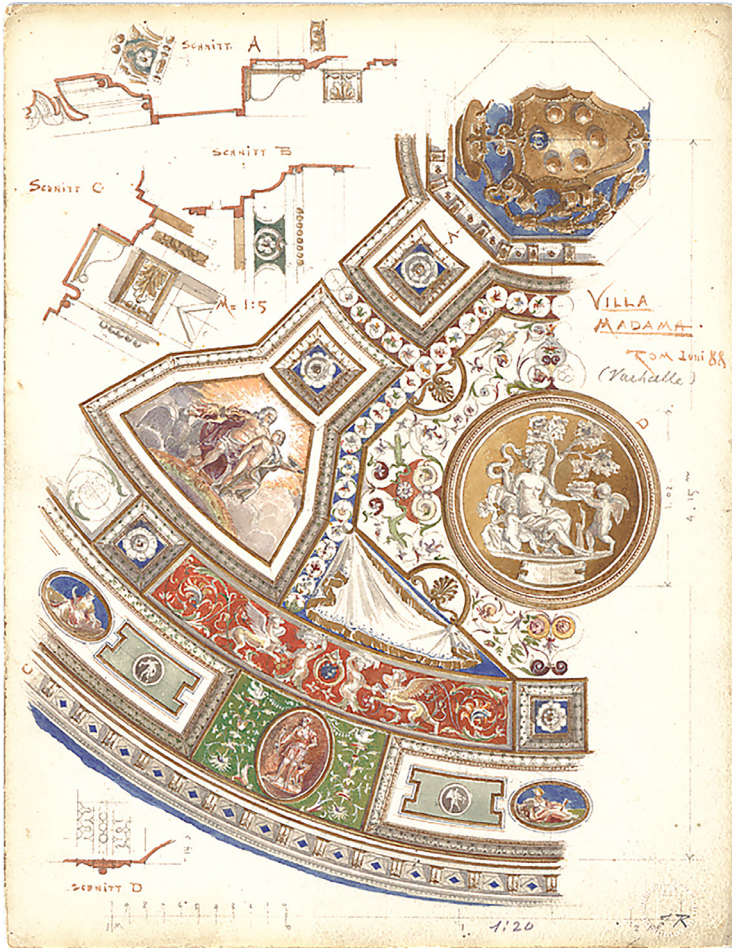 SCHNITT A
SCHNITT B
SCHNITT C
M= 1:5
A
VILLA
MADAMA.
ROM Juni 88
(Vorhalle)
D
4,15 m
C
SCHNITT D
1:20